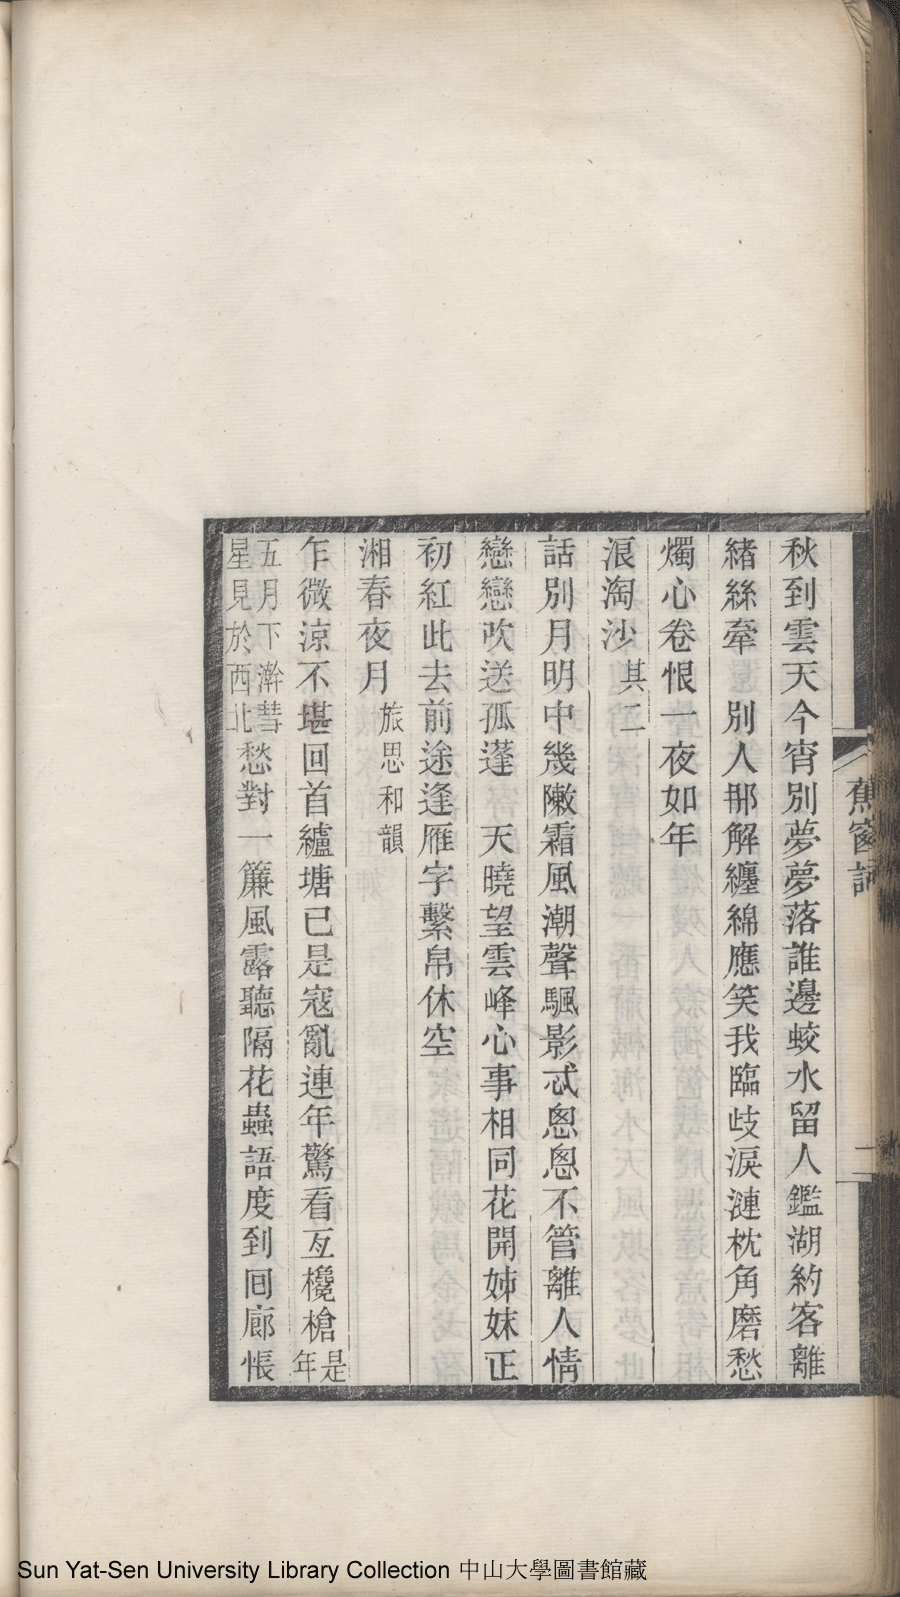 蕉窗詞
二
秋到雲天今宵別夢夢落誰邊蛟水留人鑑湖約客離
緒絲牽　別人那解纏綿應笑我臨歧淚漣枕角磨愁
燭心卷恨一夜如年
浪淘沙 其二
話別月明中幾陳霜風潮聲颿影忒恩恩不管離人情
戀戀吹送孤蓬　天曉望雲峰心事相同花開姊妹正
初紅此去前途逢雁字繫帛休空
湘春夜月 旅思和韻
乍微涼不堪回首纑塘已是寇亂連年驚看亙欃槍是年
五月下澣彗星見於西北愁對一簾風露聽隔花蟲語度到回廊悵
Sun Yat-Sen University Library Collection 中山大學圖書館藏